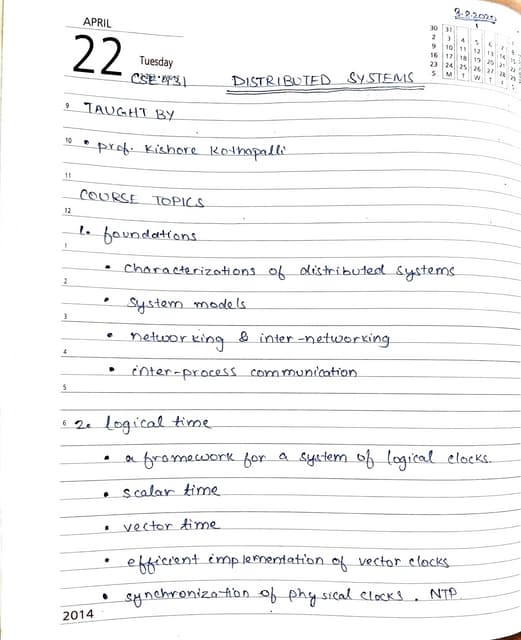 3-8-2020
APRIL
22 Tuesday
30 31
2 3 4 5 6 7
9 10 11 12 13 14
16 17 18 19 20 21
23 24 25 26 27 28
S M T W T F
CSE 431 DISTRIBUTED SYSTEMS
9 TAUGHT BY
10 • prof. Kishore Kothapalli
11
COURSE TOPICS
12
1. foundations
1
• characterizations of distributed systems
2
• system models
3
• networking & inter-networking
4
• inter-process communication
5
6 2. logical time
• a framework for a system of logical clocks.
• scalar time
• vector time
• efficient implementation of vector clocks
• synchronization of physical clocks. NTP.
2014